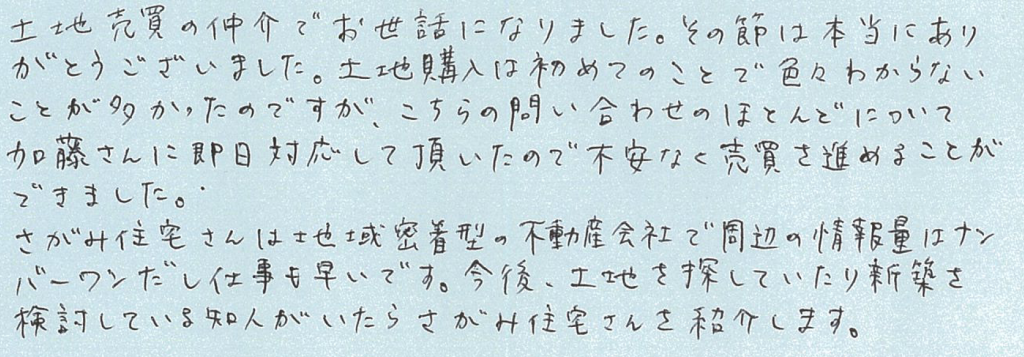 土地売買の仲介でお世話になりました。その節は本当にあり
がとうございました。土地購入は初めてのことで色々わからない
ことが多かったのですが、こちらの問い合わせのほとんどについて
加藤さんに即日対応して頂いたので不安なく売買を進めることが
できました。
さがみ住宅さんは地域密着型の不動産会社で周辺の情報量はナン
バーワンだし仕事も早いです。今後、土地を探していたり新築を
検討している知人がいたらさがみ住宅さんを紹介します。